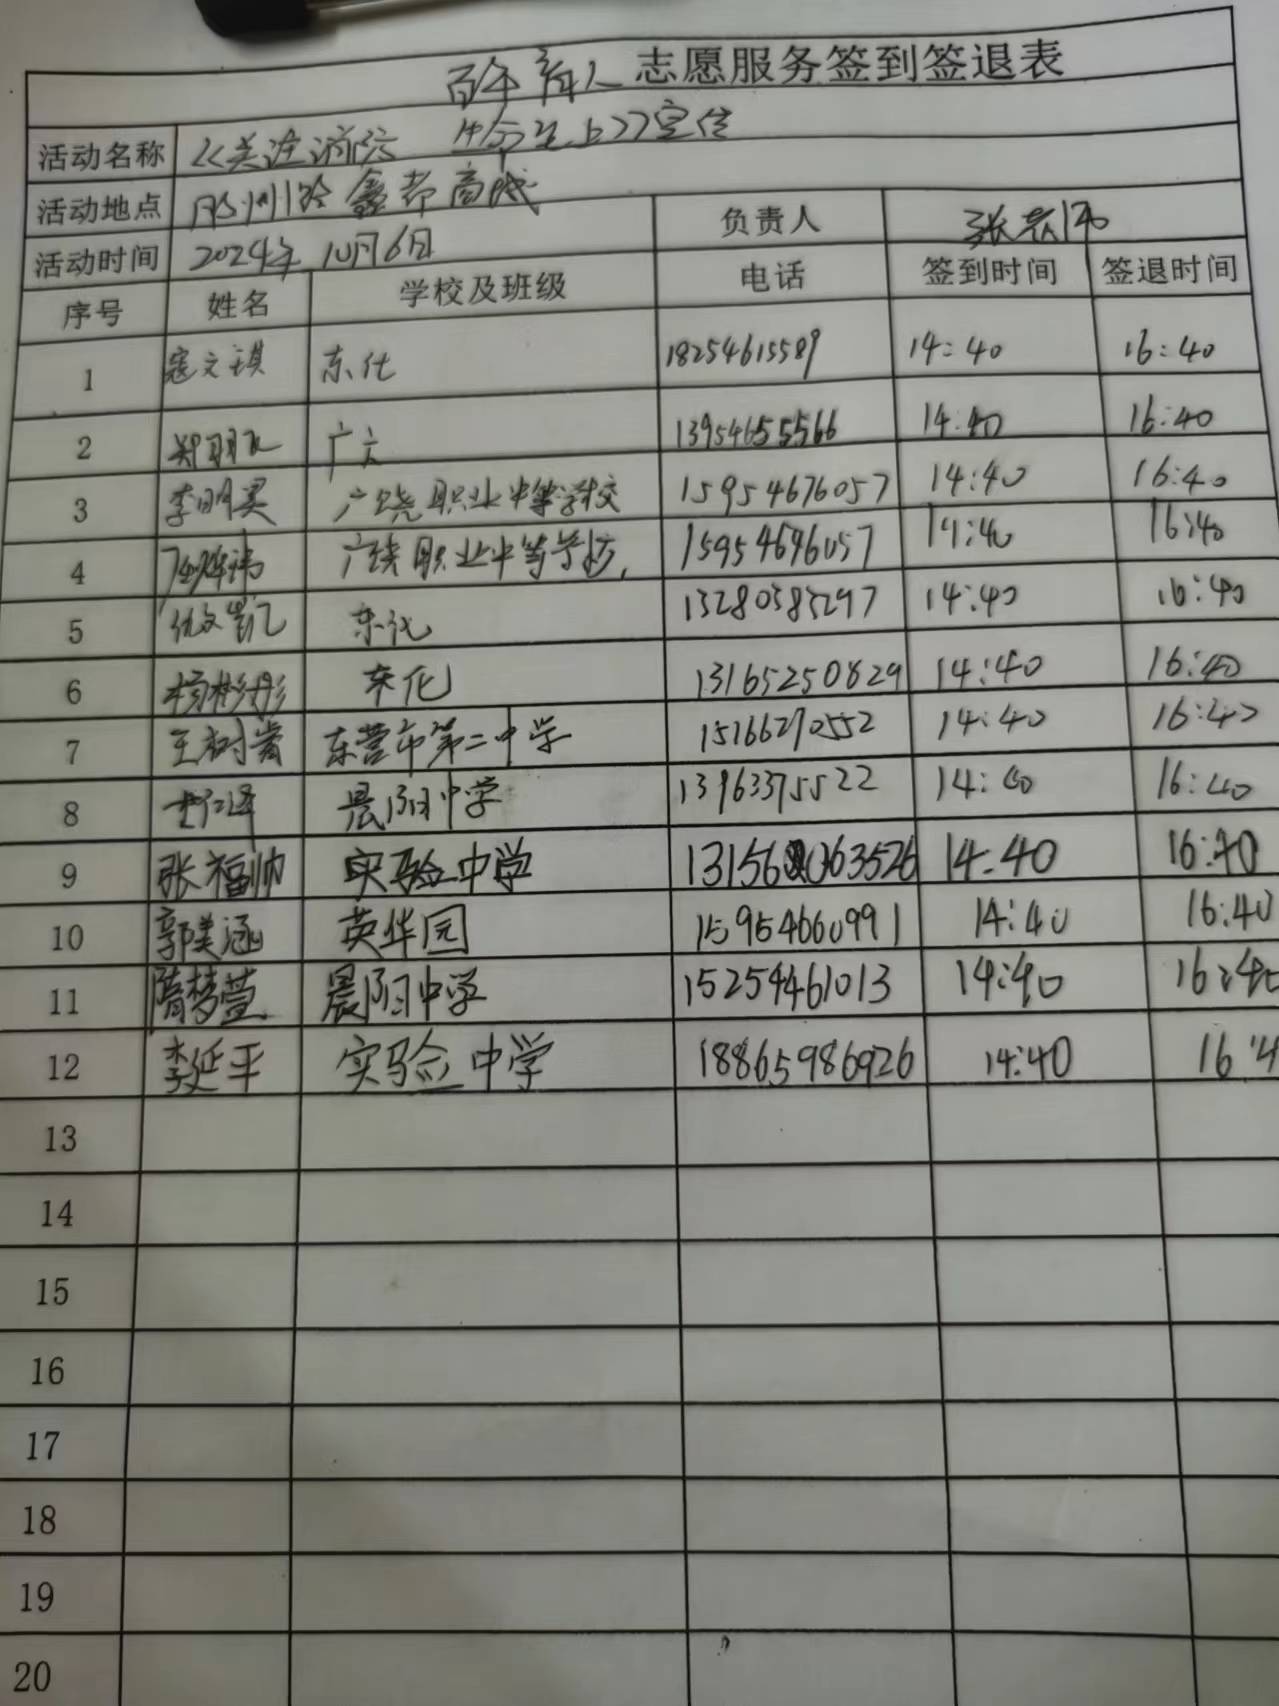 百年育人 志愿服务签到签退表
活动名称 《关注消防 生命至上》宣传
活动地点 胶州路鑫都商城
活动时间 2024年10月6日 负责人 张
序号 姓名 学校及班级 电话 签到时间 签退时间
1 寇文琪 东化 18254615589 14:40 16:40
2 郑 广 13954655566 14:40 16:40
3 李明昊 广饶职业中等学校 15954676057 14:40 16:40
4 广饶职业中等学校 14:40 16:40
5 东化 14:40 16:40
6 杨彬彤 东化 13165250829 14:40 16:40
7 王树 东营市第二中学 15166270552 14:40 16:40
8 晨阳中学 14:40 16:40
9 张福帅 实验中学 14:40 16:40
10 郭美涵 英华园 15954660991 14:40 16:40
11 隋梦萱 晨阳中学 15254461013 14:40 16:40
12 李延平 实验中学 18865986926 14:40 16:4
13
14
15
16
17
18
19
20